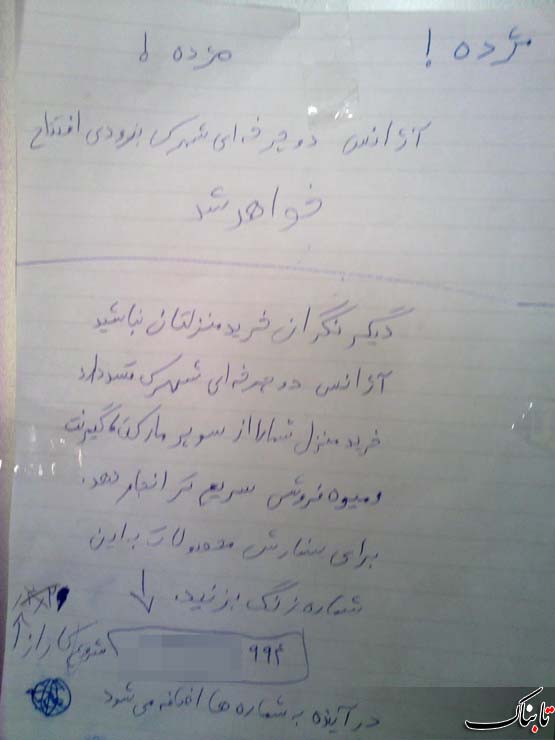 مژده !
مژده !
آژانس دوچرخه‌ای شهرک بزودی افتتاح
خواهد شد
دیگر نگران خرید منزلتان نباشید
آژانس دوچرخه‌ای شهرک قصد دارد
خرید منزل شما را از سوپر مارکت
و میوه فروشی سریع تر انجام دهد.
برای سفارش محصولات به این
شماره زنگ بزنید.
شروع کار از
۹۹۴
در آینده به شماره ها اضافه می شود
تابناک